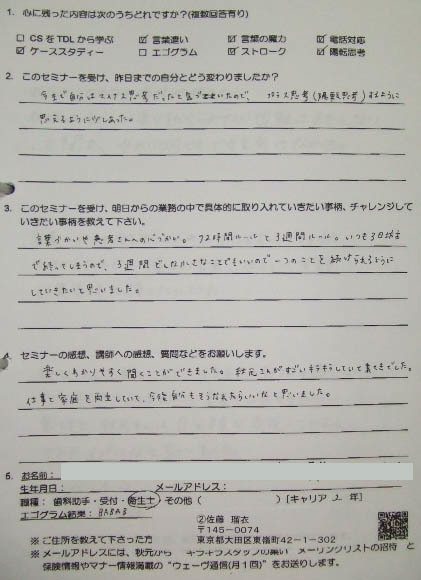 1. 心に残った内容は次のうちどれですか?(複数回答有り)
□ CSをTDLから学ぶ ☑ 言葉遣い ☑ 言葉の魔力 ☑ 電話対応
☑ ケーススタディー □ エゴグラム ☑ ストローク ☑ 陽転思考
2. このセミナーを受け、昨日までの自分とどう変わりましたか?
今まで自分はマイナス思考だったと気づきましたので、プラス思考(陽転思考)するように
思えるように
3. このセミナーを受け、明日からの業務の中で具体的に取り入れていきたい事柄、チャレンジして
いきたい事柄を教えて下さい。
言葉づかいや患者さんへの心づかい。72時間ルールと3週間ルール。いつも3日坊主
で終ってしまうので、3週間どんな小さなことでもいいので一つのことを続けられるように
していきたいと思いました。
4. セミナーの感想、講師への感想、質問などをお願いします。
楽しくわかりやすく聞くことができました。秋元さんがすごいキラキラしていて素てきでした。
仕事と家庭を両立していて、今後自分もそうなれたらいいなと思いました。
5. お名前:
生年月日: メールアドレス:
職種:歯科助手・受付・衛生士 その他( )[キャリア 2 年]
エゴグラム結果:BABAB
②佐藤 瑠衣
※ ご住所を教えて下さった方 〒145-0074
東京都大田区東嶺町42-1-302
※ メールアドレスには、秋元から キラキラスタッフの集い メーリングリストの招待 と
保険情報やマナー情報満載の "ウェーヴ通信(月1回)をお送りします。